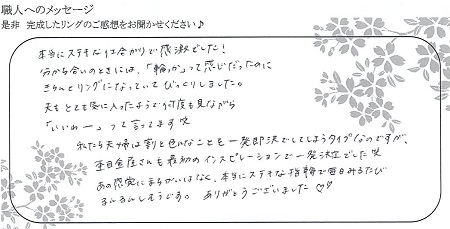 職人へのメッセージ
是非 完成したリングのご感想をお聞かせください♪
本当にステキな仕上がりで感激でした！
分かち合いのときには、「輪っか」って感じだったのに
きちんとリングになっていてびっくりしました。
夫もとても気に入ったようで何度も見ながら
「いいねー」って言ってます笑
私たち夫婦は割と色んなことを一発即決でしてしまうタイプなのですが、
杢目金屋さんも最初のインスピレーションで一発決定でした笑
あの感覚にまちがいはなく、本当にステキな指輪で毎日みるたび
るんるんしそうです。 ありがとうございました♡♡